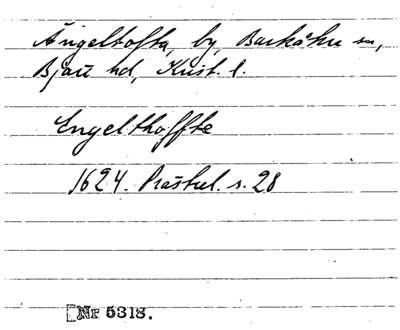 Ängeltofta, by, Barkåkra sn,
Bjäre hd, Krist. l.
Engelthoffte
1624. Prästrel. s. 28
[Nr 5318.